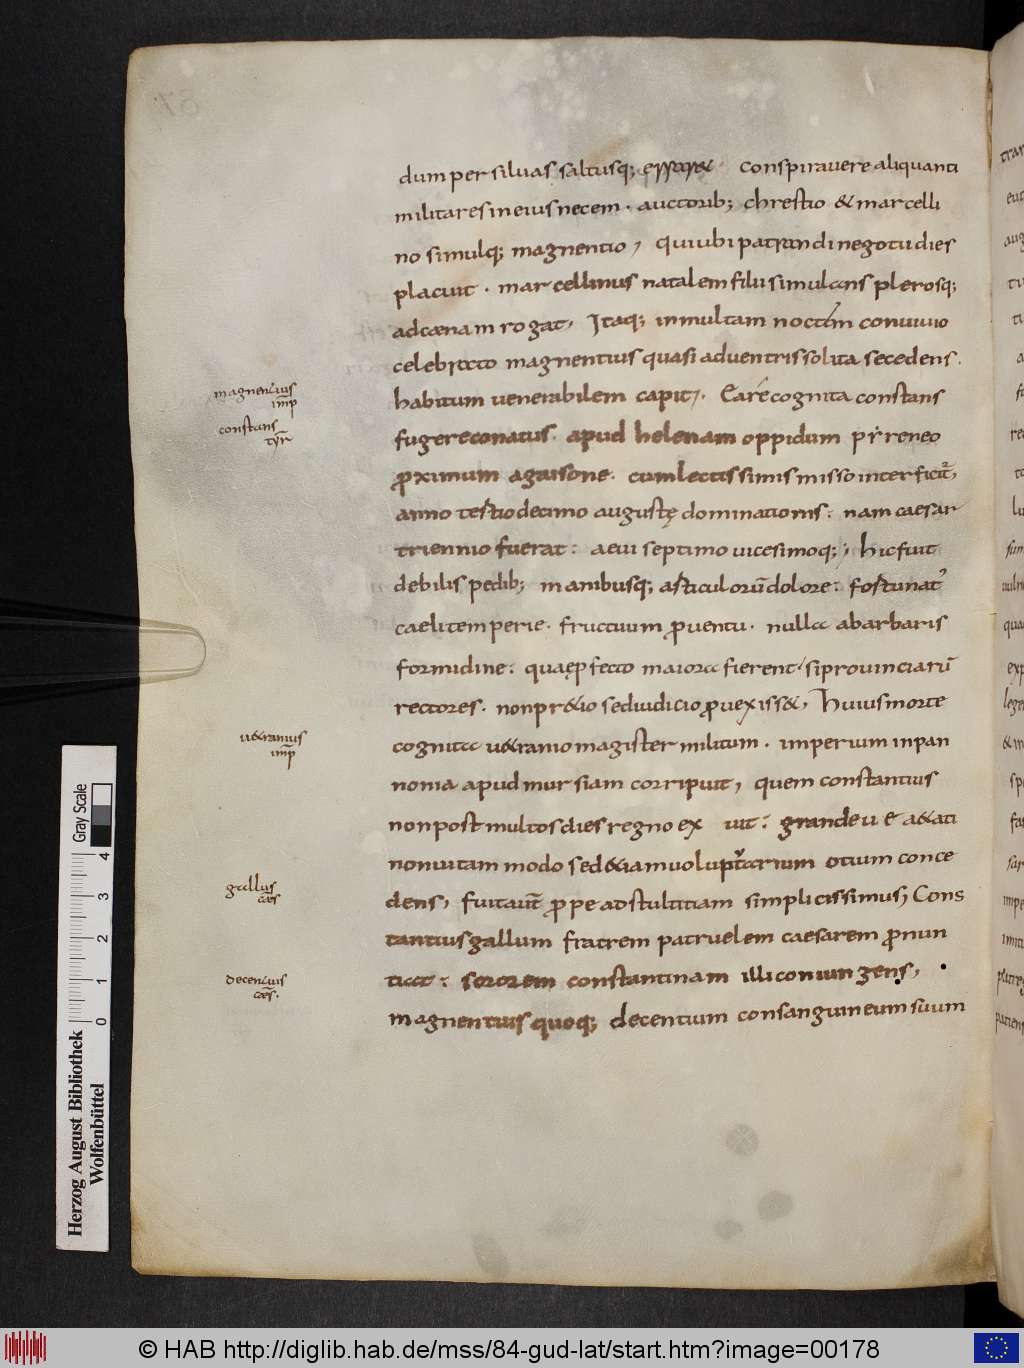 dum per siluas saltusq; erraret conspirauere aliquanti
militares in eius necem · auctorib; chrestio & marcelli
no simulq; magnentio, qui ubi patrandi negotii dies
placuit · marcellinus natalem filii simulans plerosq;
ad cænam rogat, Itaq; in multam noctem conuiuio
celebrato magnentius quasi ad uentris solita secedens ·
habitum uenerabilem capit, · Ea re cognita constans
fugere conatus · apud helenam oppidum pyreneo
ꝓximum a gaisone · cum lectissimis misso interficit̃,
anno tertio decimo augustę dominationis : nam caesar
triennio fuerat : aeui septimo uicesimoq; , hic fuit
debilis pedib; manibusq; articuloru̅ dolore : fortunat᾽
caeli temperie · fructuum ꝓuentu · nulla a barbaris
formidine : quaę ꝓfecto maiora fierent, si prouinciaru̅
rectores · non pr&io sed iudicio ꝓuexiss&, huius morte
cognita u&ranio magister militum · imperium in pan
nonia apud mursiam corripuit, quem constantius
non post multos dies regno exuit : grandeue a&ati
non uitam modo sed&iam uoluptarium otium conce
dens, fuit aut̅ ꝓpe ad stultitiam simplicissimus; Cons
tantius gallum fratrem patruelem caesarem ꝓnun
tiat : sororem constantinam illi coniungens,
magnentius quoq; decentium consanguineum suum
magnentius
im̅p
constans
tyr̅
u&ranius
im̅p
gallus
caes
decentius
caes ·
Gray Scale
0 1 2 3 4
Herzog August Bibliothek
Wolfenbüttel
© HAB http://diglib.hab.de/mss/84-gud-lat/start.htm?image=00178